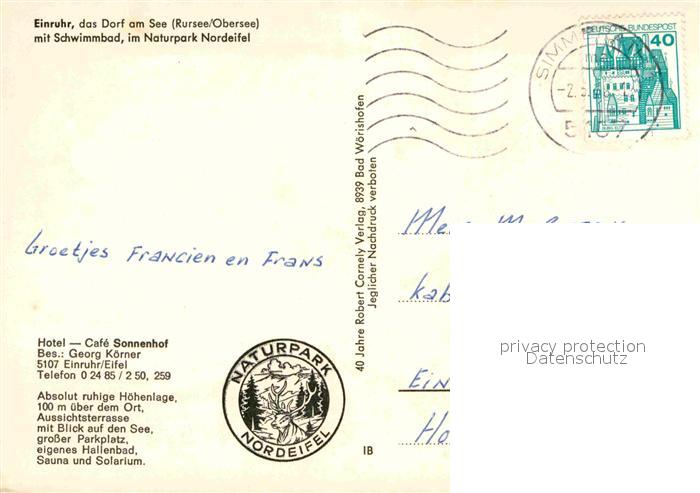 Einruhr, das Dorf am See (Rursee/Obersee)
mit Schwimmbad, im Naturpark Nordeifel
DEUTSCHE BUNDESPOST
40
SIMM
5107
40 Jahre Robert Cornely Verlag, 8939 Bad Wörishofen
Jeglicher Nachdruck verboten
Groetjes Francien en Frans
Kab
privacy protection
Datenschutz
Ein
Ho
Hotel — Café Sonnenhof
Bes.: Georg Körner
5107 Einruhr/Eifel
Telefon 0 24 85 / 2 50, 259
Absolut ruhige Höhenlage,
100 m über dem Ort,
Aussichtsterrasse
mit Blick auf den See,
großer Parkplatz,
eigenes Hallenbad,
Sauna und Solarium.
NATURPARK
NORDEIFEL
IB